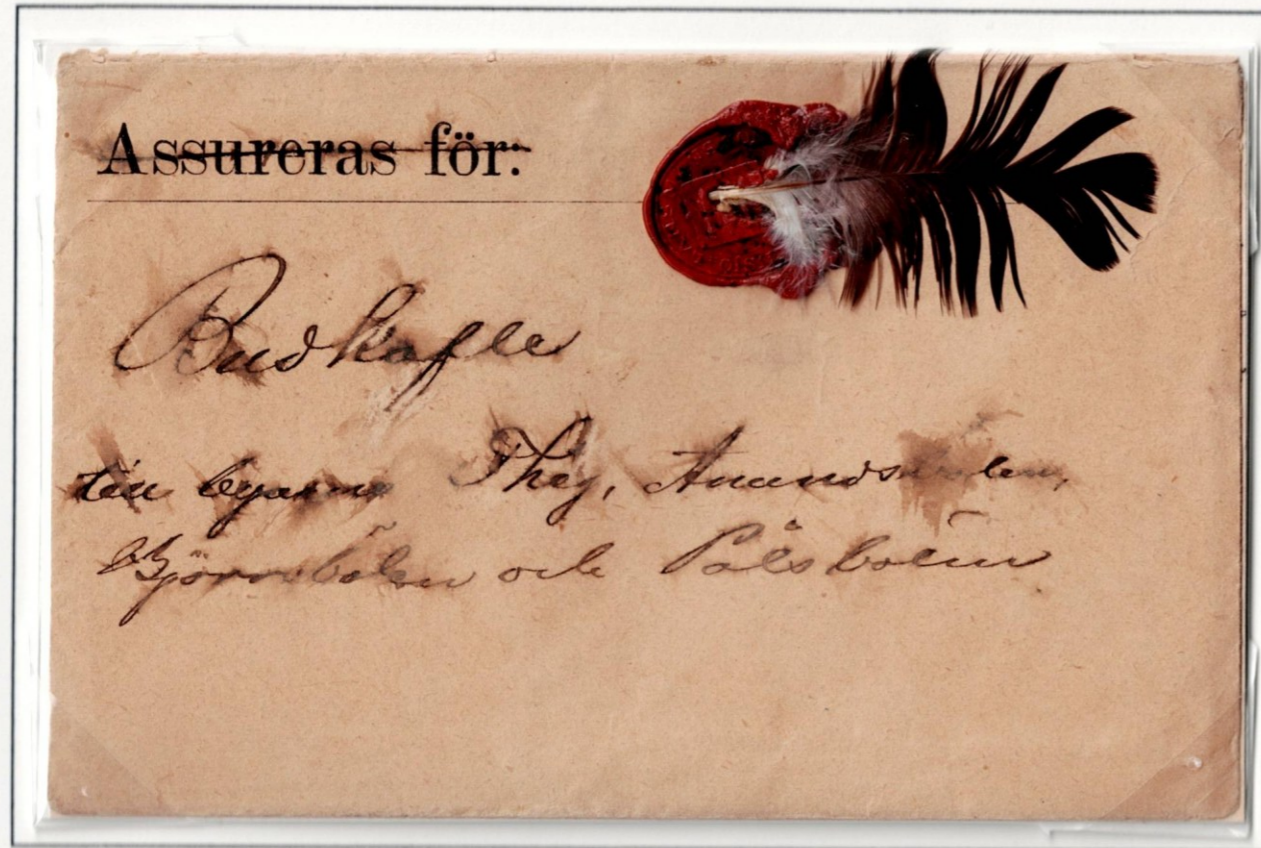 Assureras för:
Budkafle
till byarne Theg, Amundsbolen,
Björnbolen och Pålsbolen